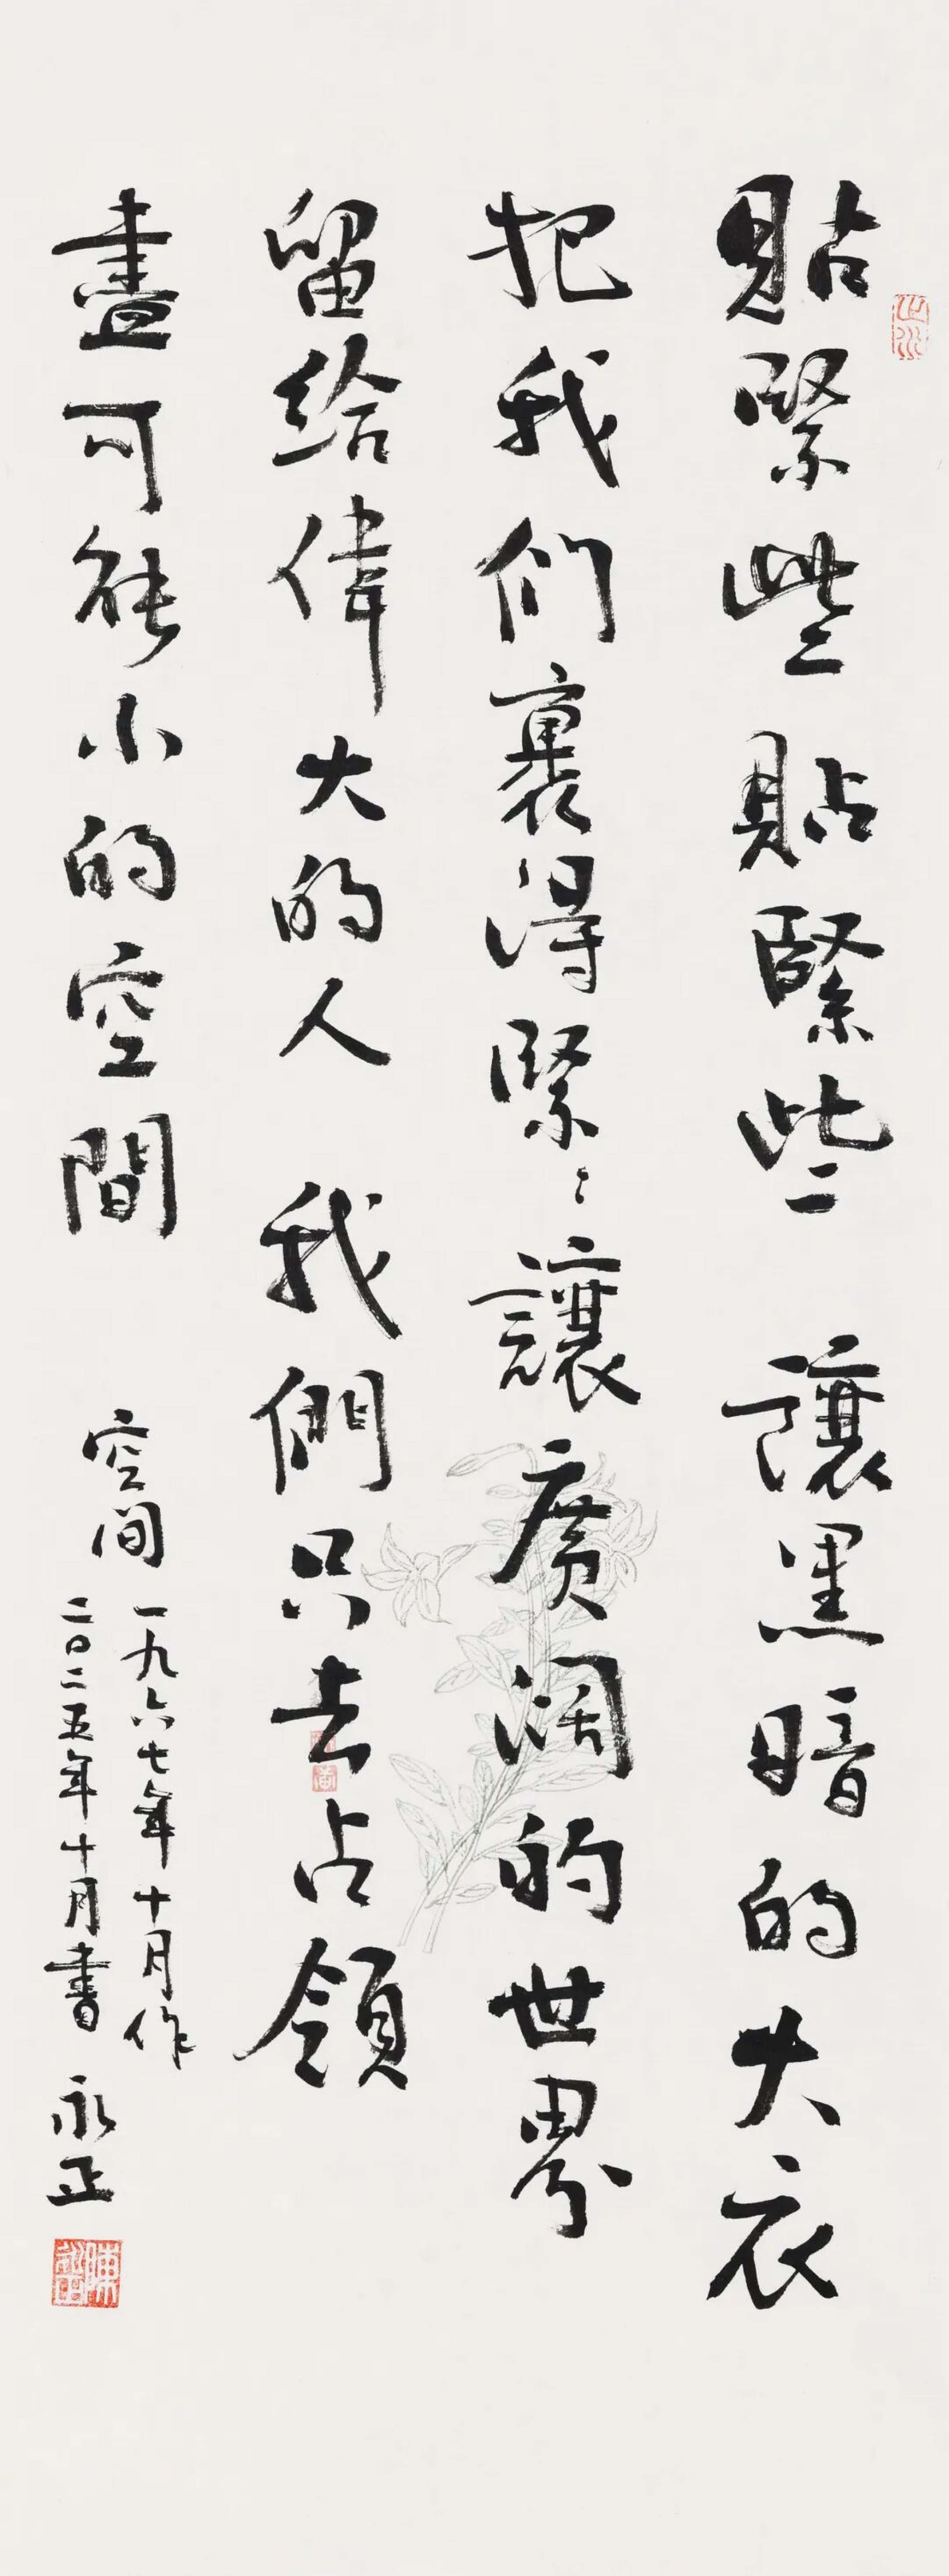 貼緊些貼緊些 讓黑暗的大衣
把我們裹得緊〻讓廣闊的世界
留給偉大的人 我們只去占領
盡可能小的空間
空间
一九六七年十月作
二〇二五年十月書
永正